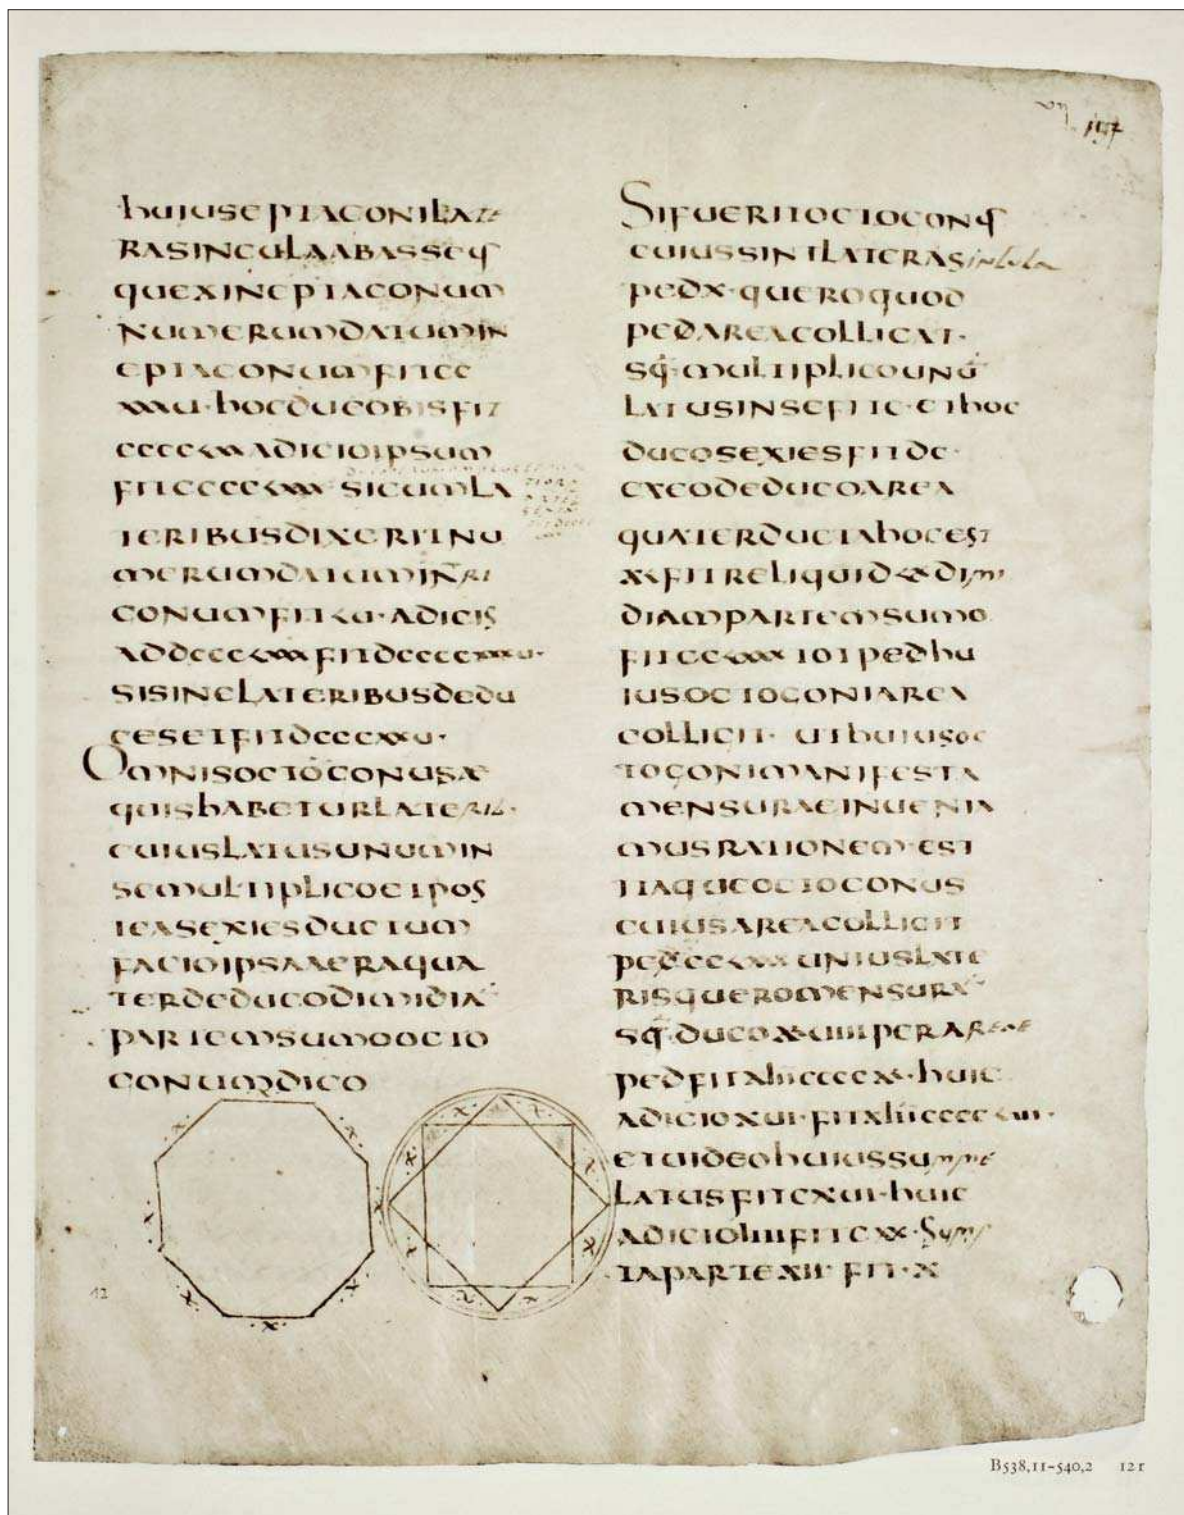 huiuseptagonilate
rasingulaabasseq
quexineptagonum
numerumdatumin
eptagonumfitcc
xxxu·hocducobisfit
cccclxxadicioipsum
fitcccclxxx·sicumla
teribusdixeritnu
merumdatumintri
gonumfitlu·adicis
addcccclxxxfitdccccxxxu·
sisinelateribusdedu
cesetfitdcccxxu·
Omnisoctogonusae
quishabeturlateris·
cuiuslatusunumin
semultiplicoetpos
teasexiesductum
facioipsaaeraqua
terdeducodimidia
partemsumoocto
gonumdico
·x· ·x· ·x· ·x· ·x· ·x· ·x· ·x·
·x· ·x· ·x· ·x· ·x· ·x· ·x· ·x·
12
Sifueritoctogonus
cuiussintlaterasingula
pedx·queroquod
pedareacolligat·
sq·multiplicounu
latusinsefitc·ethoc
ducosexiesfitdc·
excodeducoarea
quaterductahocest
xlfitreliquidlxdimi
diampartemsumo
fitcclxxxtotpedhu
iusoctogoniarea
colligit·uthuiusoc
togonimanifesta
mensuraeinuenia
musrationem·est
itaqueoctogonus
cuiusareacolligit
pedcclxxxuniuslate
risqueromensura
sq·ducoxluiiiperareae
pedfitxliiccccxl·huic
adicioxui·fitxliiccccluı·
etuideohuiussumme
latusfitcxui·huic
adicioiiiifitcxx·Sums
tapartexii·fit·x
B538,11–540,2 12r